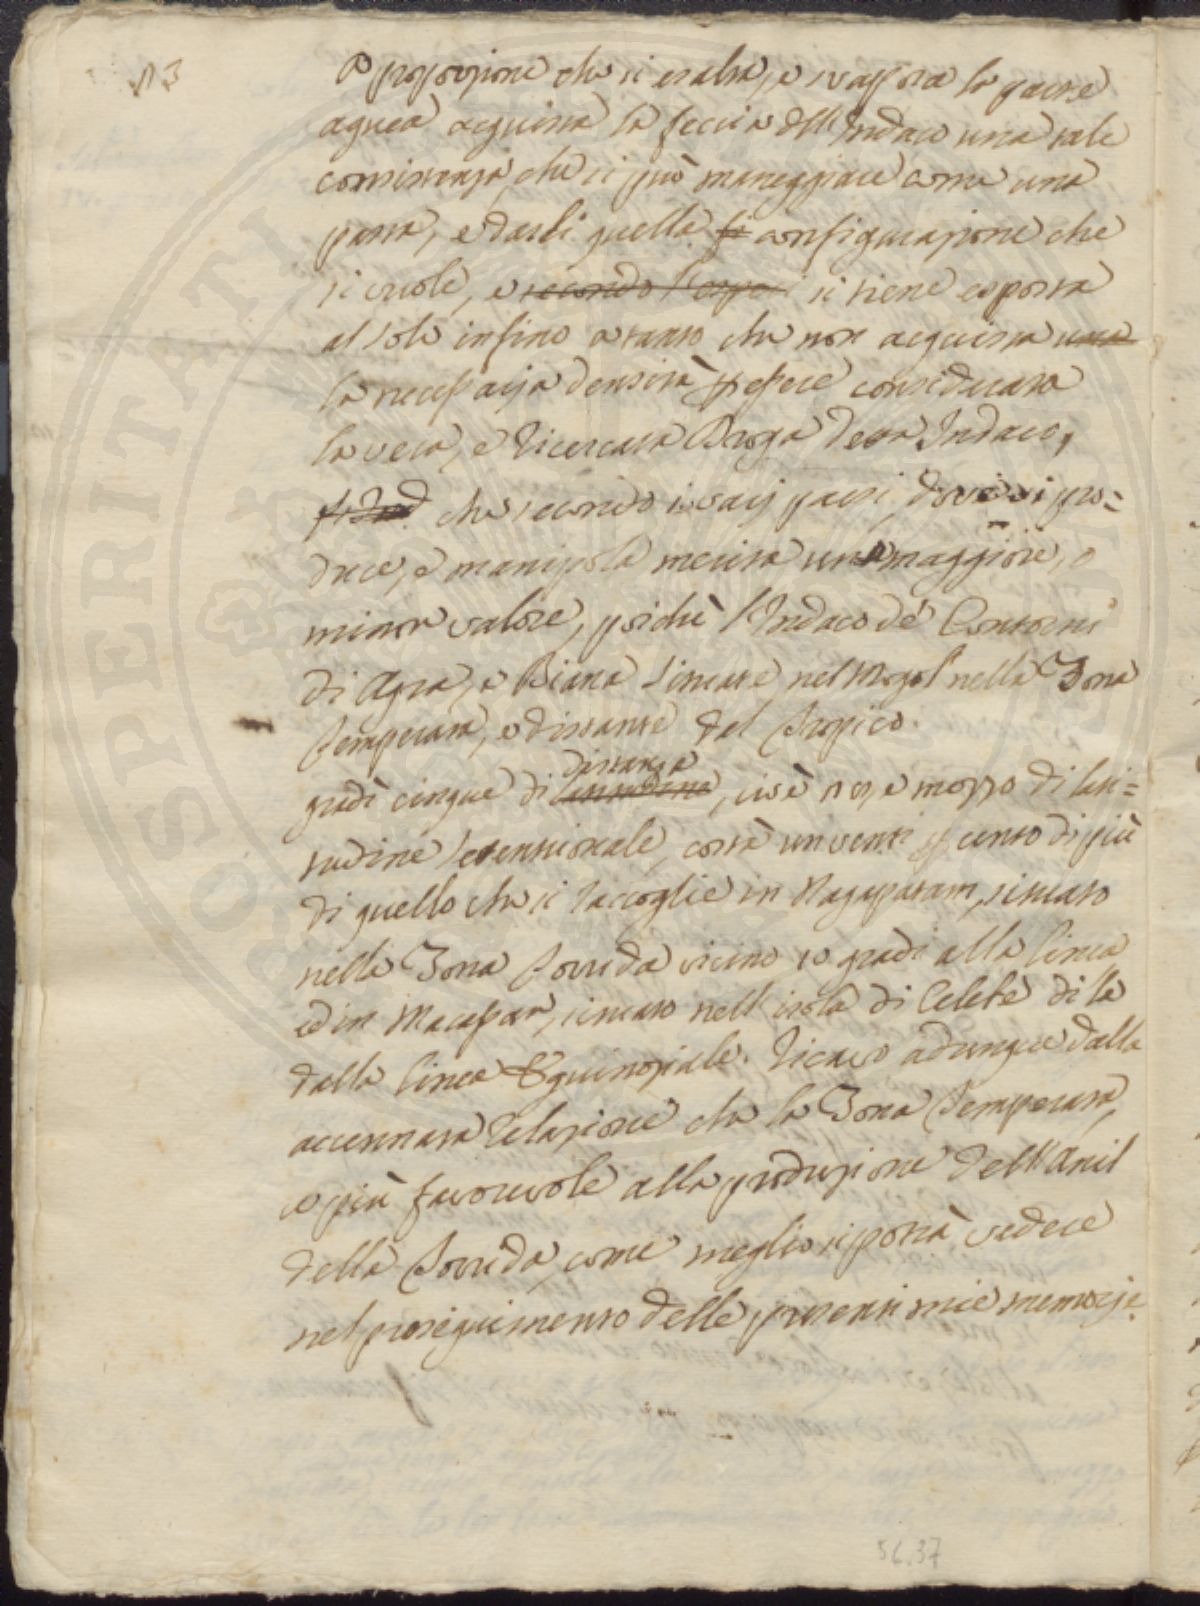 N 3
A proporzione che si esala, e svapora la parte
aquea acquista la feccia dell'Indaco una tale
consistenza, che si può maneggiare come una
pasta, e darli quella configurazione che
si vuole, e secondo l' si tiene esposta
al sole infino a tanto che non acquista una
la necessaria densità per essere considerata
la vera, e ricercata Droga detta Indaco,
che secondo i varj paesi, dove si pro=
duce, e manipola merita un maggiore, o
minor valore, poichè l'Indaco de' Contorni
di Agra, e Biana situate nel Mogol nella Zona
Temperata, e distante del Tropico
distanza
gradi cinque di latitudine, cioè e mezzo di lati=
tudine settentrionale, costà un venti per cento di più
di quello che si raccoglie in Nagapatam, situato
nella Zona Torrida vicino 10 gradi alla linea
ed in Macassar, situato nell'isola di Celebe di là
dalla linea Equinoziale. Ricavo adunque dalla
accennata relazione che la Zona Temperata,
è più favorevole alla produzione dell'Anil
della Torrida, come meglio si potrà vedere
nel proseguimento delle presenti mie memorie.
56.37
SPERITATI